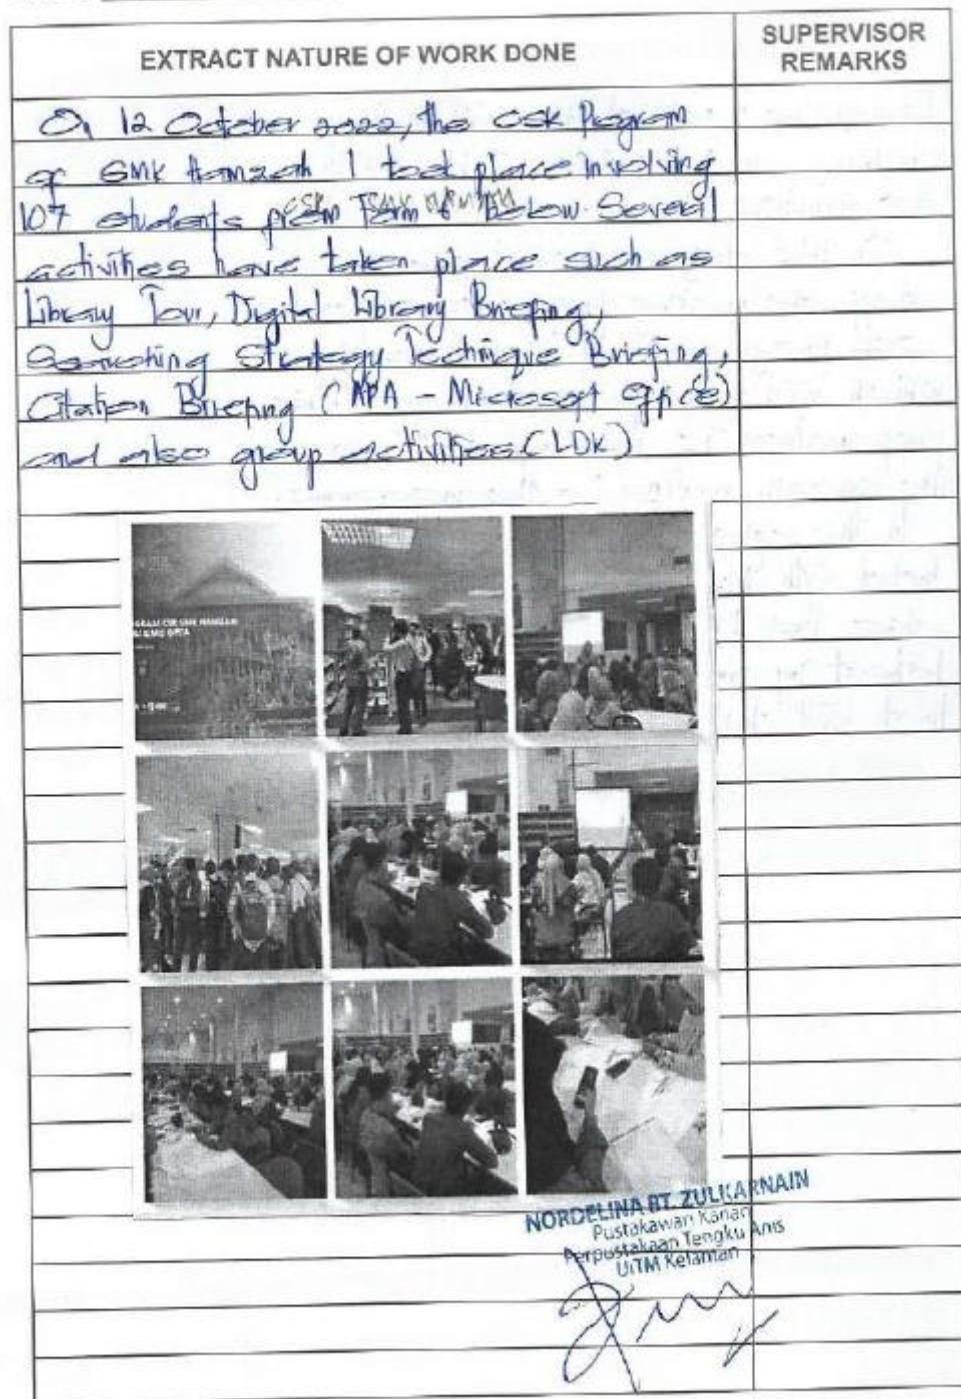 EXTRACT NATURE OF WORK DONE
SUPERVISOR
REMARKS
On 12 October 2022, the CSR Program
of SMK Hamzah 1 took place involving
107 students from Form 6 Below. Several
activities have taken place such as
Library Tour, Digital Library Briefing,
Searching Strategy Technique Briefing,
Citation Briefing (APA - Microsoft Office)
and also group activities (LDK)
NORDELINA BT. ZULKARNAIN
Pustakawan Kanan
Perpustakaan Tengku Anis
UiTM Kelantan